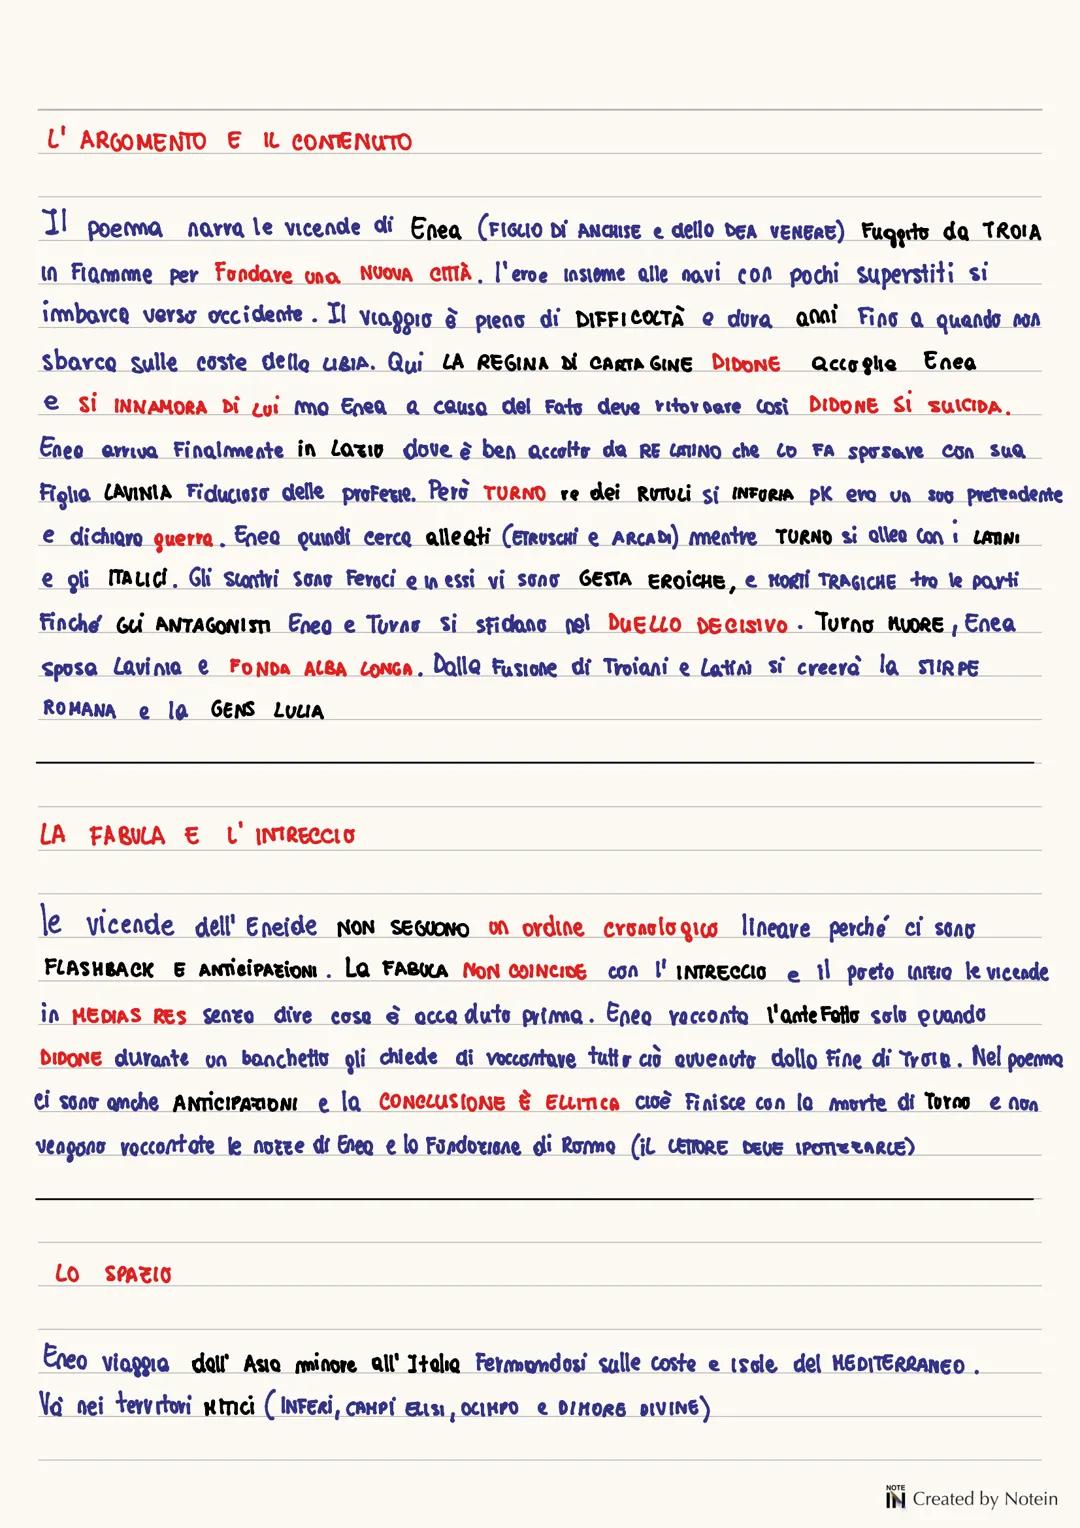 L' ARGOMENTO E IL CONTENUTO
Il poema narra le vicende di Enea (FIGLIO DI ANCHISE e della DEA VENERE) Fuggito da TROIA
in Fiamme per Fondare una NUOVA CITTÀ. l'eroe insieme alle navi con pochi superstiti si
imbarca verso occidente. Il viaggio è pieno di DIFFICOLTÀ e dura anni Fino a quando non
sbarca sulle coste della LIBIA. Qui LA REGINA DI CARTAGINE DIDONE accoglie Enea
e SI INNAMORA DI LUI ma Enea a causa del Fato deve ritornare così DIDONE SI SUICIDA.
Enea arriva Finalmente in Lazio dove è ben accolto da RE LATINO che LO FA sposare con sua
Figlia LAVINIA Fiducioso delle profezie. Però TURNO re dei RUTULI si INFURIA pK era un suo pretendente
e dichiara guerra. Enea quindi cerca alleati (ETRUSCHI e ARCADI) mentre TURNO si allea con i LATINI
e gli ITALICI. Gli Scontri sono Feroci e in essi vi sono GESTA EROICHE, e MORTI TRAGICHE tra le parti
Finché GLI ANTAGONISTI Enea e Turno si sfidano nel DUELLO DECISIVO. Turno MUORE, Enea
sposa Lavinia e FONDA ALBA LONGA. Dalla Fusione di Troiani e Latini si creerà la STIRPE
ROMANA e la GENS LULIA
LA FABULA E L' INTRECCIO
le vicende dell' Eneide NON SEGUONO un ordine cronologico lineare perché ci sono
FLASHBACK E ANTICIPAZIONI. La FABULA NON COINCIDE con l' INTRECCIO e il poeta inizia le vicende
in MEDIAS RES senza dire cosa è accaduto prima. Enea racconta l'anteFatto solo quando
DIDONE durante un banchetto gli chiede di raccontare tutto ciò avvenuto dalla Fine di Troia. Nel poema
ci sono anche ANTICIPAZIONI e la CONCLUSIONE È ELLITICA cioè Finisce con la morte di Turno e non
vengono raccontate le nozze di Enea e la Fondazione di Roma (IL LETTORE DEVE IPOTIZZARLE)
LO SPAZIO
Enea viaggia dall' Asia minore all' Italia Fermandosi sulle coste e isole del MEDITERRANEO.
Va nei territori MITICI (INFERI, CAMPI ELISI, OLIMPO e DIMORE DIVINE)
NOTE
IN Created by Notein